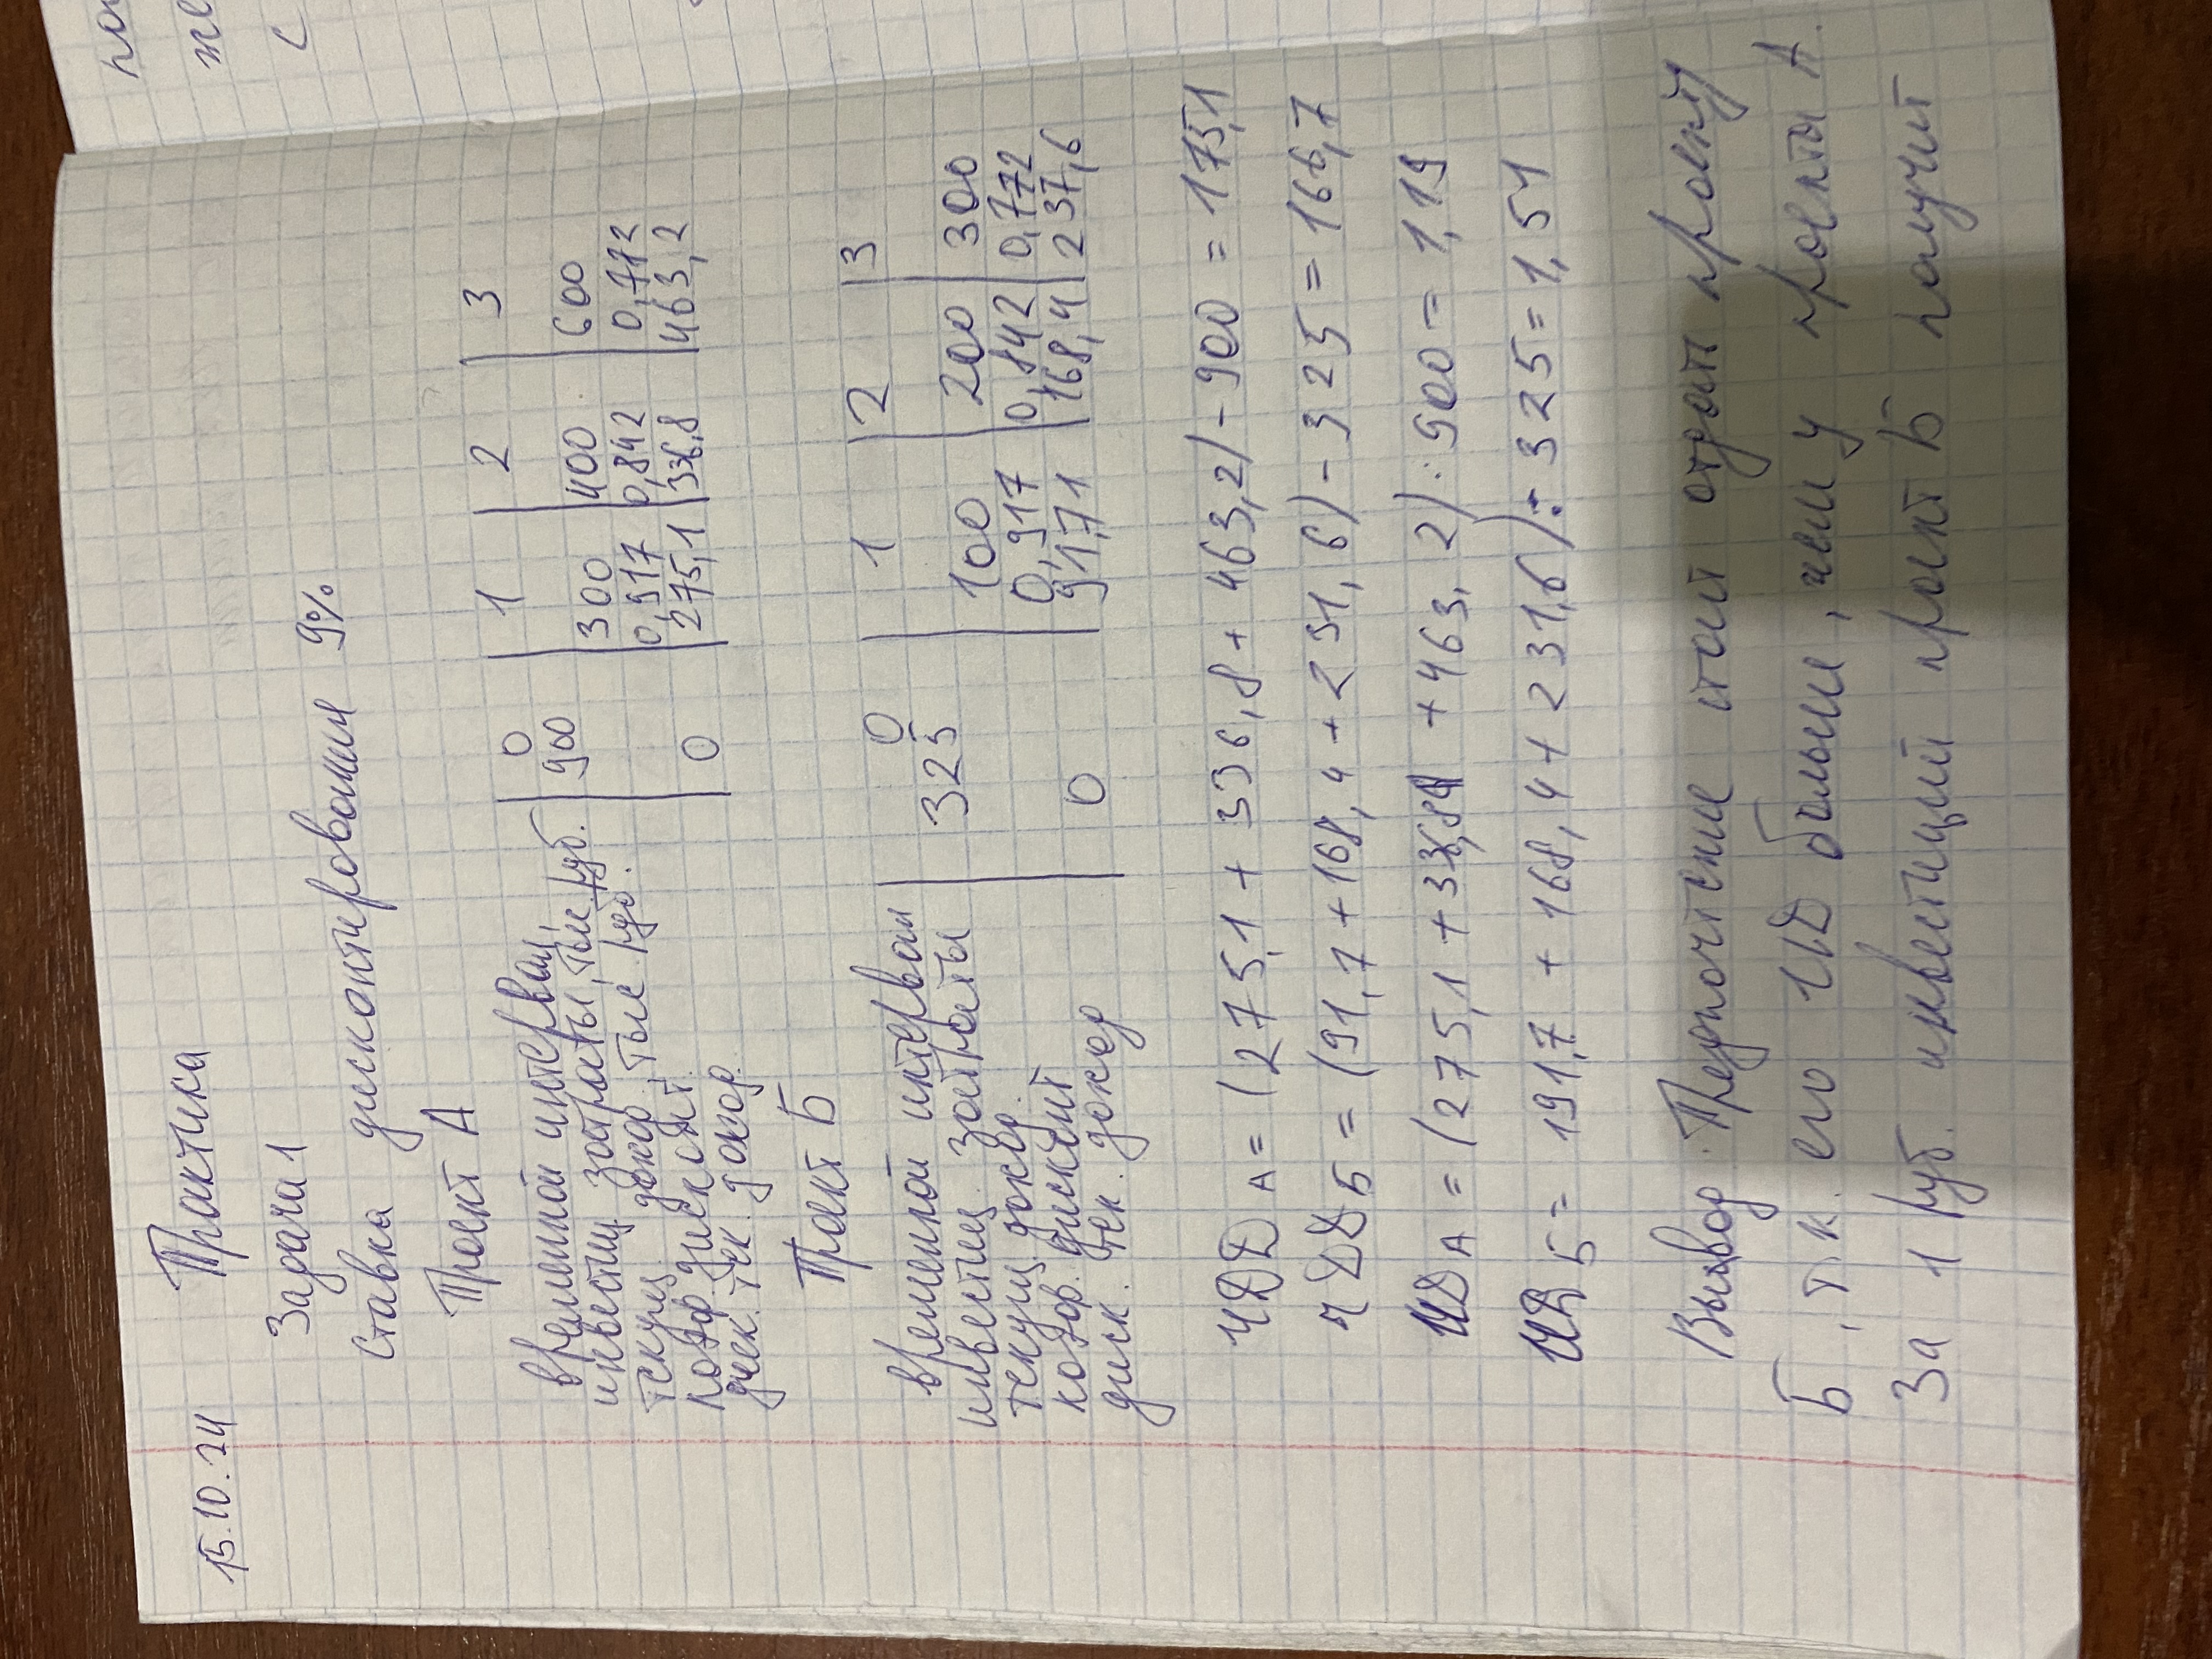 15.10.24 Практика
Задача 1
Ставка дисконтирования 9%
Проект А
временной интервал, 0 1 2 3
инвестиц затраты, тыс руб. 900
текущ. доход, тыс. руб. 300 400 600
коэф. дисконт. 0,917 0,842 0,772
диск. тек. доход. 0 275,1 336,8 463,2
Проект Б
временной интервал 0 1 2 3
инвестиц. затраты 325
текущ. доход. 100 200 300
коэф. дисконт 0,917 0,842 0,772
диск. тек. доход 0 91,71 168,4 237,6
ЧДД А = (275,1 + 336,8 + 463,2) - 900 = 175,1
ЧДД Б = (91,7 + 168,4 + 231,6) - 325 = 166,7
ИД А = (275,1 + 336,8 + 463,2) : 900 = 1,19
ИД Б = (91,7 + 168,4 + 231,6) : 325 = 1,51
Вывод. Предпочтение стоит отдать проекту
Б, т.к. его ИД больше, чем у проекта А.
За 1 руб. инвестиций проект Б получит